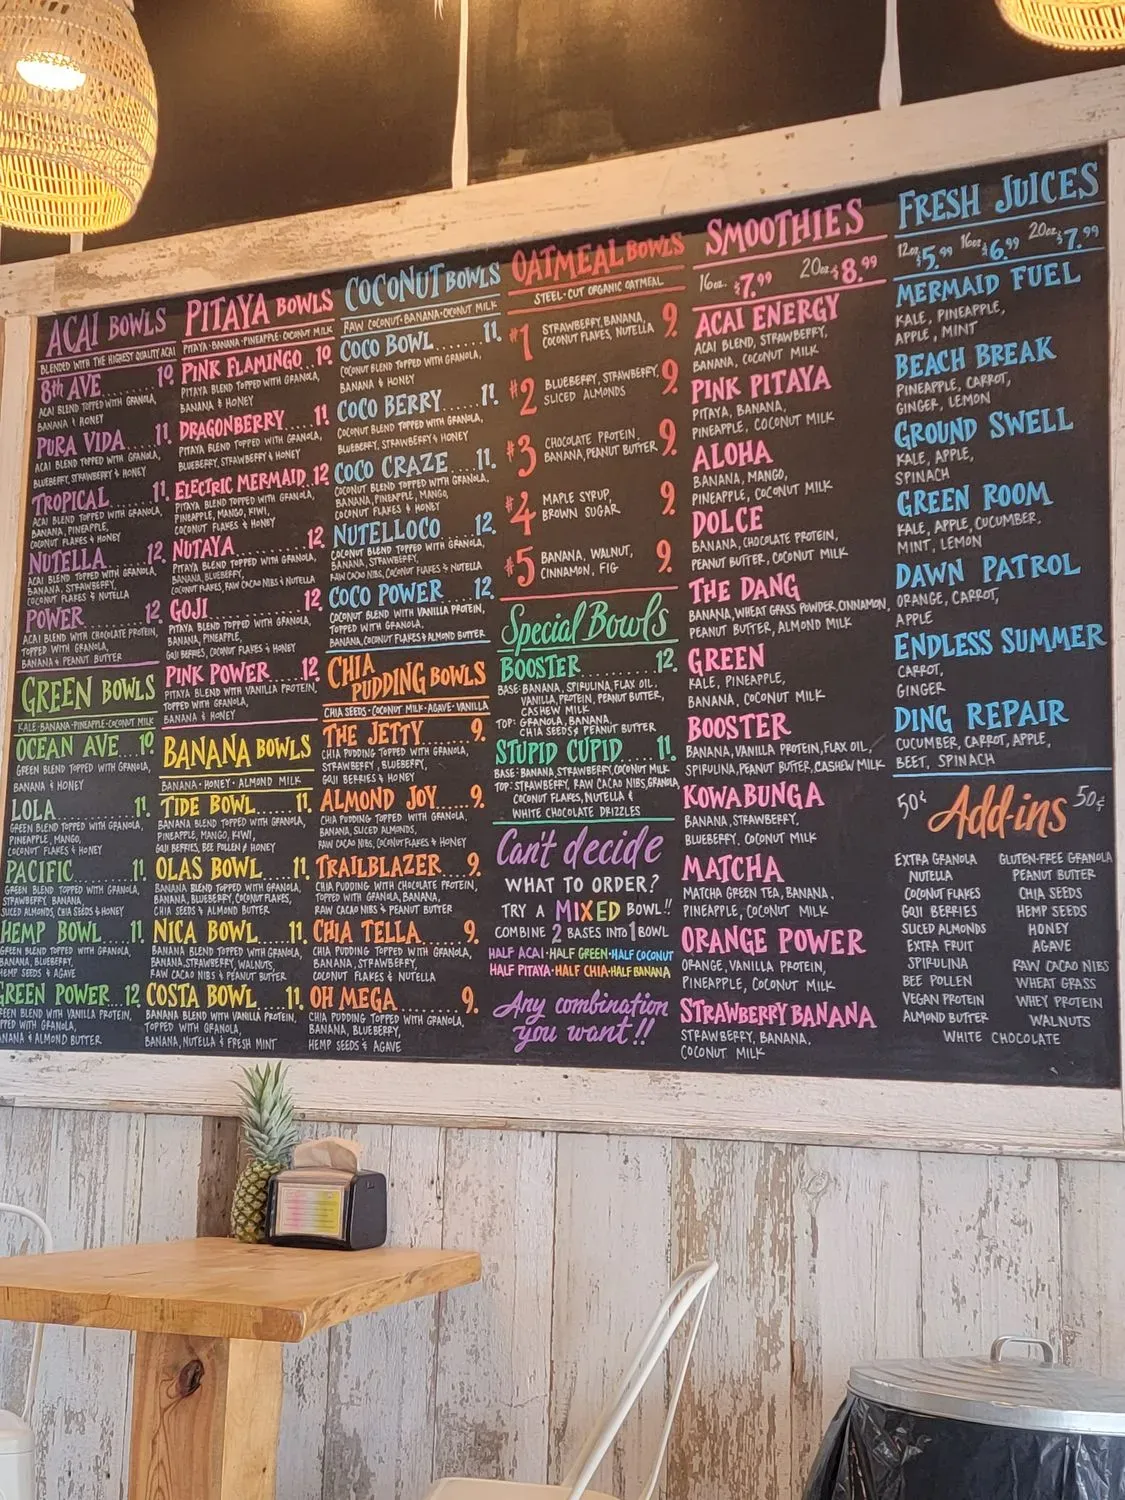 ACAI BOWLS
BLENDED WITH THE HIGHEST QUALITY ACAI
8th AVE ..... 10.
ACAI BLEND TOPPED WITH GRANOLA,
BANANA & HONEY
PURA VIDA ... 11.
ACAI BLEND TOPPED WITH GRANOLA,
BLUEBERRY, STRAWBERRY & HONEY
TROPICAL ..... 11.
ACAI BLEND TOPPED WITH GRANOLA,
BANANA, PINEAPPLE,
COCONUT FLAKES & HONEY
NUTELLA ..... 12.
ACAI BLEND TOPPED WITH GRANOLA,
BANANA, STRAWBERRY,
COCONUT FLAKES & NUTELLA
POWER ...... 12.
ACAI BLEND WITH CHOCOLATE PROTEIN,
TOPPED WITH GRANOLA,
BANANA & PEANUT BUTTER
GREEN BOWLS
KALE·BANANA·PINEAPPLE·COCONUT MILK
OCEAN AVE ... 10.
GREEN BLEND TOPPED WITH GRANOLA,
BANANA & HONEY
LOLA ........ 11.
GREEN BLEND TOPPED WITH GRANOLA,
PINEAPPLE, MANGO,
COCONUT FLAKES & HONEY
PACIFIC ..... 11.
GREEN BLEND TOPPED WITH GRANOLA,
STRAWBERRY, BANANA,
SLICED ALMONDS, CHIA SEEDS & HONEY
HEMP BOWL ... 11.
GREEN BLEND TOPPED WITH GRANOLA,
BANANA, BLUEBERRY,
HEMP SEEDS & AGAVE
GREEN POWER .. 12
GREEN BLEND WITH VANILLA PROTEIN,
TOPPED WITH GRANOLA,
BANANA & ALMOND BUTTER
PITAYA BOWLS
PITAYA·BANANA·PINEAPPLE·COCONUT MILK
PINK FLAMINGO .. 10.
PITAYA BLEND TOPPED WITH GRANOLA,
BANANA & HONEY
DRAGONBERRY ..... 11.
PITAYA BLEND TOPPED WITH GRANOLA,
BLUEBERRY, STRAWBERRY & HONEY
ELECTRIC MERMAID 12
PITAYA BLEND TOPPED WITH GRANOLA,
PINEAPPLE, MANGO, KIWI,
COCONUT FLAKES & HONEY
NUTAYA ........ 12.
PITAYA BLEND TOPPED WITH GRANOLA,
BANANA, BLUEBERRY,
COCONUT FLAKES, RAW CACAO NIBS & NUTELLA
GOJI ......... 12.
PITAYA BLEND TOPPED WITH GRANOLA,
BANANA, PINEAPPLE,
GOJI BERRIES, COCONUT FLAKES & HONEY
PINK POWER .... 12.
PITAYA BLEND WITH VANILLA PROTEIN,
TOPPED WITH GRANOLA,
BANANA & HONEY
BANANA BOWLS
BANANA·HONEY·ALMOND MILK
TIDE BOWL ..... 11.
BANANA BLEND TOPPED WITH GRANOLA,
PINEAPPLE, MANGO, KIWI,
GOJI BERRIES, BEE POLLEN & HONEY
OLAS BOWL .... 11.
BANANA BLEND TOPPED WITH GRANOLA,
BANANA, BLUEBERRY, COCONUT FLAKES,
CHIA SEEDS & ALMOND BUTTER
NICA BOWL ..... 11.
BANANA BLEND TOPPED WITH GRANOLA,
BANANA, STRAWBERRY, WALNUTS,
RAW CACAO NIBS & PEANUT BUTTER
COSTA BOWL .... 11.
BANANA BLEND WITH VANILLA PROTEIN,
TOPPED WITH GRANOLA,
BANANA, NUTELLA & FRESH MINT
COCONUT BOWLS
RAW COCONUT·BANANA·COCONUT MILK
COCO BOWL ..... 11.
COCONUT BLEND TOPPED WITH GRANOLA,
BANANA & HONEY
COCO BERRY .... 11.
COCONUT BLEND TOPPED WITH GRANOLA,
BLUEBERRY, STRAWBERRY & HONEY
COCO CRAZE .... 11.
COCONUT BLEND TOPPED WITH GRANOLA,
BANANA, PINEAPPLE, MANGO,
COCONUT FLAKES & HONEY
NUTELLOCO .... 12.
COCONUT BLEND TOPPED WITH GRANOLA,
BANANA, STRAWBERRY,
RAW CACAO NIBS, COCONUT FLAKES & NUTELLA
COCO POWER ... 12.
COCONUT BLEND WITH VANILLA PROTEIN,
TOPPED WITH GRANOLA,
BANANA, COCONUT FLAKES & ALMOND BUTTER
CHIA
PUDDING BOWLS
CHIA SEEDS·COCONUT MILK·AGAVE·VANILLA
THE JETTY ..... 9.
CHIA PUDDING TOPPED WITH GRANOLA,
STRAWBERRY, BLUEBERRY,
GOJI BERRIES & HONEY
ALMOND JOY .... 9.
CHIA PUDDING TOPPED WITH GRANOLA,
BANANA, SLICED ALMONDS,
RAW CACAO NIBS, COCONUT FLAKES & HONEY
TRAILBLAZER ... 9.
CHIA PUDDING WITH CHOCOLATE PROTEIN,
TOPPED WITH GRANOLA, BANANA,
RAW CACAO NIBS & PEANUT BUTTER
CHIA TELLA .... 9.
CHIA PUDDING TOPPED WITH GRANOLA,
BANANA, STRAWBERRY,
COCONUT FLAKES & NUTELLA
OH MEGA ....... 9.
CHIA PUDDING TOPPED WITH GRANOLA,
BANANA, BLUEBERRY,
HEMP SEEDS & AGAVE
OATMEAL BOWLS
STEEL-CUT ORGANIC OATMEAL
#1 STRAWBERRY, BANANA, 9.
COCONUT FLAKES, NUTELLA
#2 BLUEBERRY, STRAWBERRY, 9.
SLICED ALMONDS
#3 CHOCOLATE PROTEIN, 9.
BANANA, PEANUT BUTTER
#4 MAPLE SYRUP, 9.
BROWN SUGAR
#5 BANANA, WALNUT, 9.
CINNAMON, FIG
Special Bowls
BOOSTER ....... 12.
BASE: BANANA, SPIRULINA, FLAX OIL,
VANILLA PROTEIN, PEANUT BUTTER,
CASHEW MILK
TOP: GRANOLA, BANANA,
CHIA SEEDS & PEANUT BUTTER
STUPID CUPID .... 11.
BASE: BANANA, STRAWBERRY, COCONUT MILK
TOP: STRAWBERRY, RAW CACAO NIBS, GRANOLA,
COCONUT FLAKES, NUTELLA &
WHITE CHOCOLATE DRIZZLES
Can't decide
WHAT TO ORDER?
TRY A MIXED BOWL!!
COMBINE 2 BASES INTO 1 BOWL
HALF ACAI·HALF GREEN·HALF COCONUT
HALF PITAYA·HALF CHIA·HALF BANANA
Any combination
you want!!
SMOOTHIES
16oz. $7.99 20oz. $8.99
ACAI ENERGY
ACAI BLEND, STRAWBERRY,
BANANA, COCONUT MILK
PINK PITAYA
PITAYA, BANANA,
PINEAPPLE, COCONUT MILK
ALOHA
BANANA, MANGO,
PINEAPPLE, COCONUT MILK
DOLCE
BANANA, CHOCOLATE PROTEIN,
PEANUT BUTTER, COCONUT MILK
THE DANG
BANANA, WHEAT GRASS POWDER, CINNAMON,
PEANUT BUTTER, ALMOND MILK
GREEN
KALE, PINEAPPLE,
BANANA, COCONUT MILK
BOOSTER
BANANA, VANILLA PROTEIN, FLAX OIL,
SPIRULINA, PEANUT BUTTER, CASHEW MILK
KOWABUNGA
BANANA, STRAWBERRY,
BLUEBERRY, COCONUT MILK
MATCHA
MATCHA GREEN TEA, BANANA,
PINEAPPLE, COCONUT MILK
ORANGE POWER
ORANGE, VANILLA PROTEIN,
PINEAPPLE, COCONUT MILK
STRAWBERRY BANANA
STRAWBERRY, BANANA,
COCONUT MILK
FRESH JUICES
12oz. $5.99 16oz. $6.99 20oz. $7.99
MERMAID FUEL
KALE, PINEAPPLE,
APPLE, MINT
BEACH BREAK
PINEAPPLE, CARROT,
GINGER, LEMON
GROUND SWELL
KALE, APPLE,
SPINACH
GREEN ROOM
KALE, APPLE, CUCUMBER,
MINT, LEMON
DAWN PATROL
ORANGE, CARROT,
APPLE
ENDLESS SUMMER
CARROT,
GINGER
DING REPAIR
CUCUMBER, CARROT, APPLE,
BEET, SPINACH
50¢ Add-ins 50¢
EXTRA GRANOLA GLUTEN-FREE GRANOLA
NUTELLA PEANUT BUTTER
COCONUT FLAKES CHIA SEEDS
GOJI BERRIES HEMP SEEDS
SLICED ALMONDS HONEY
EXTRA FRUIT AGAVE
SPIRULINA RAW CACAO NIBS
BEE POLLEN WHEAT GRASS
VEGAN PROTEIN WHEY PROTEIN
ALMOND BUTTER WALNUTS
WHITE CHOCOLATE